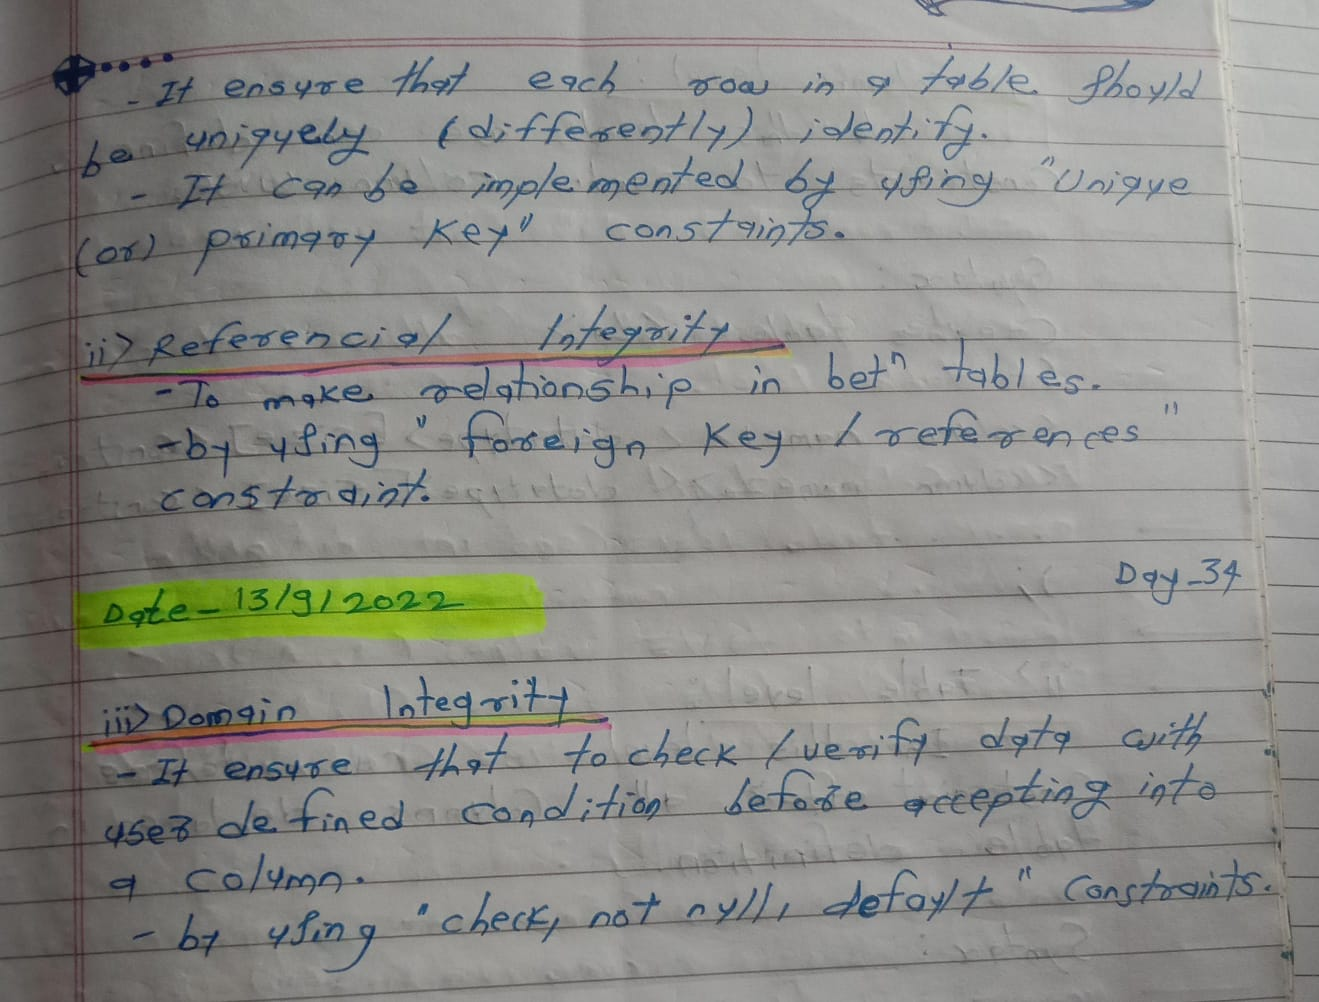 - It ensure that each row in a table should
be uniquely (differently) identify.
- It can be implemented by using "Unique
(or) primary key" constaints.
ii) Referencial Integrity
- To make relationship in betn tables.
- by using "foreign key / references"
constraint.
Day-34
Date - 13/9/2022
iii) Domain Integrity
- It ensure that to check / verify data with
user defined condition before accepting into
a column.
- by using "check, not null, default" constraints.